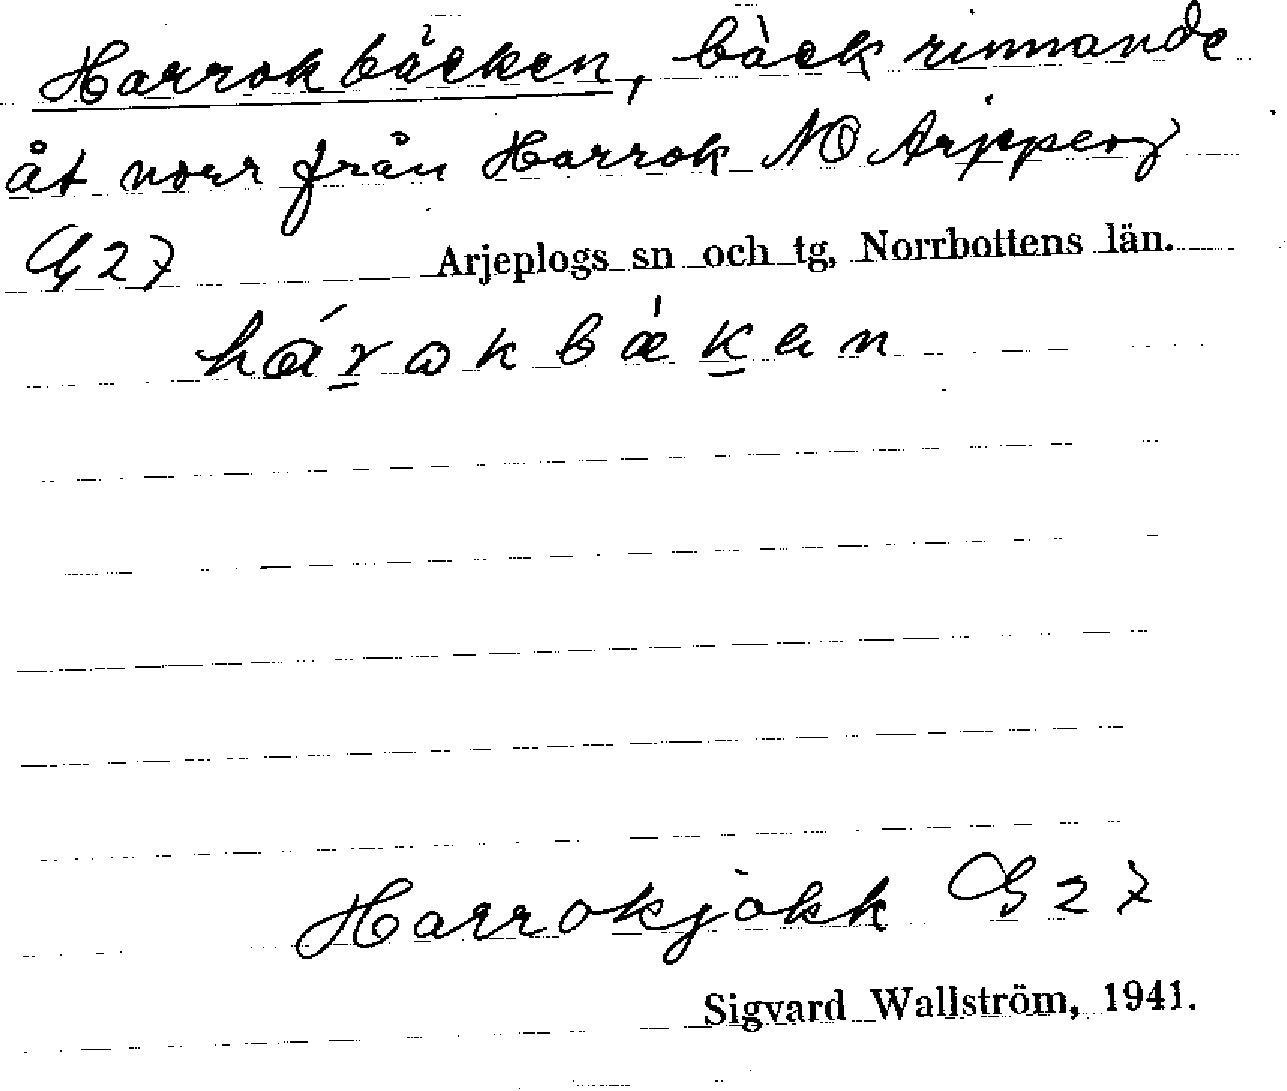 Harrokbäcken, bäck rinnande
åt norr från Harrok NO Arjeplog
G 27 Arjeplogs sn och tg, Norrbottens län.
hárokbǽkan
Harrokjokk G 27
Sigvard Wallström, 1941.